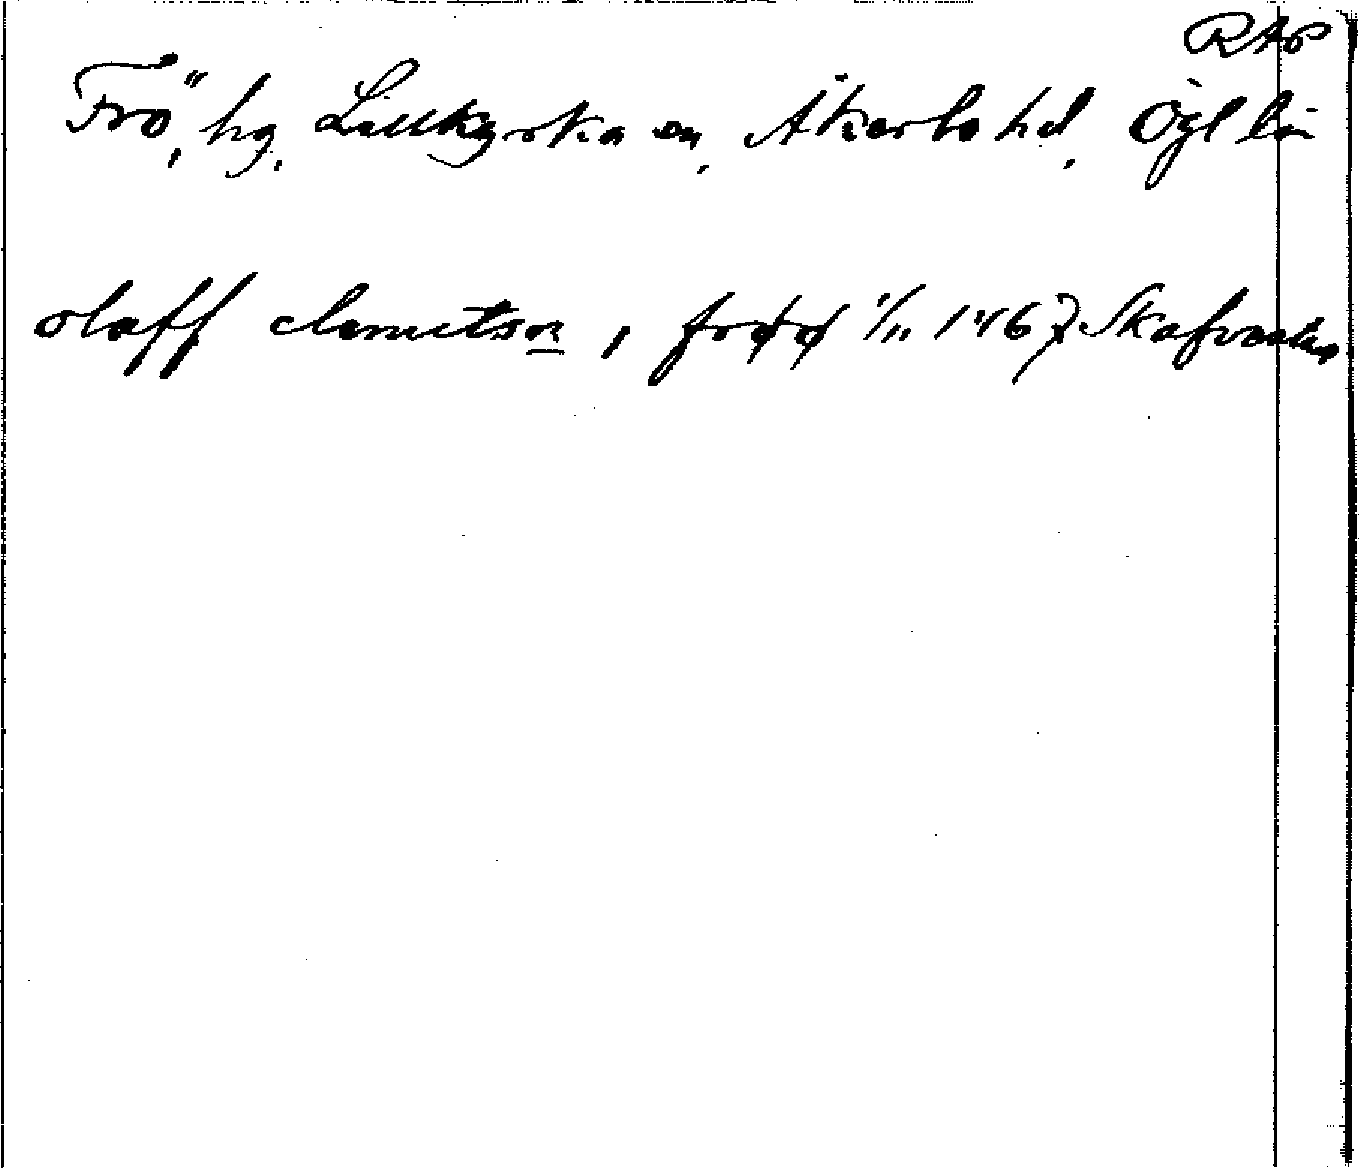 RAp
Frö, hg, Lillkyrka sn, Åkerbo hd, Ögl län
olaff clemetson, frøø 1/11 1467 Skafvastad